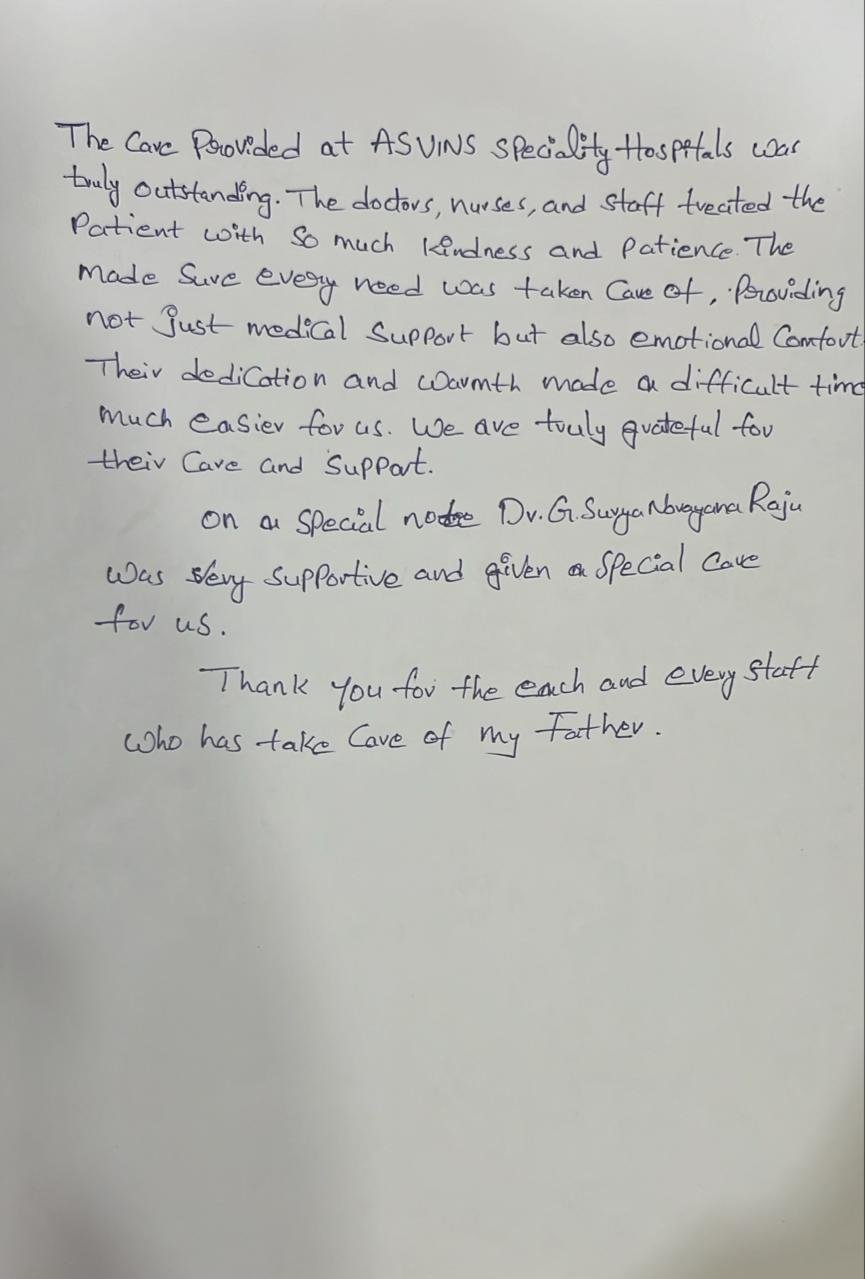 The Care Provided at ASVINS Speciality Hospitals was
truly outstanding. The doctors, nurses, and staff treated the
Patient with so much kindness and patience. The
made sure every need was taken care of, Providing
not just medical support but also emotional comfort.
Their dedication and warmth made a difficult time
much easier for us. We are truly grateful for
their care and support.
on a special note Dr. G. Surya Narayana Raju
was very supportive and given a special care
for us.
Thank you for the each and every staff
who has take care of my Father.